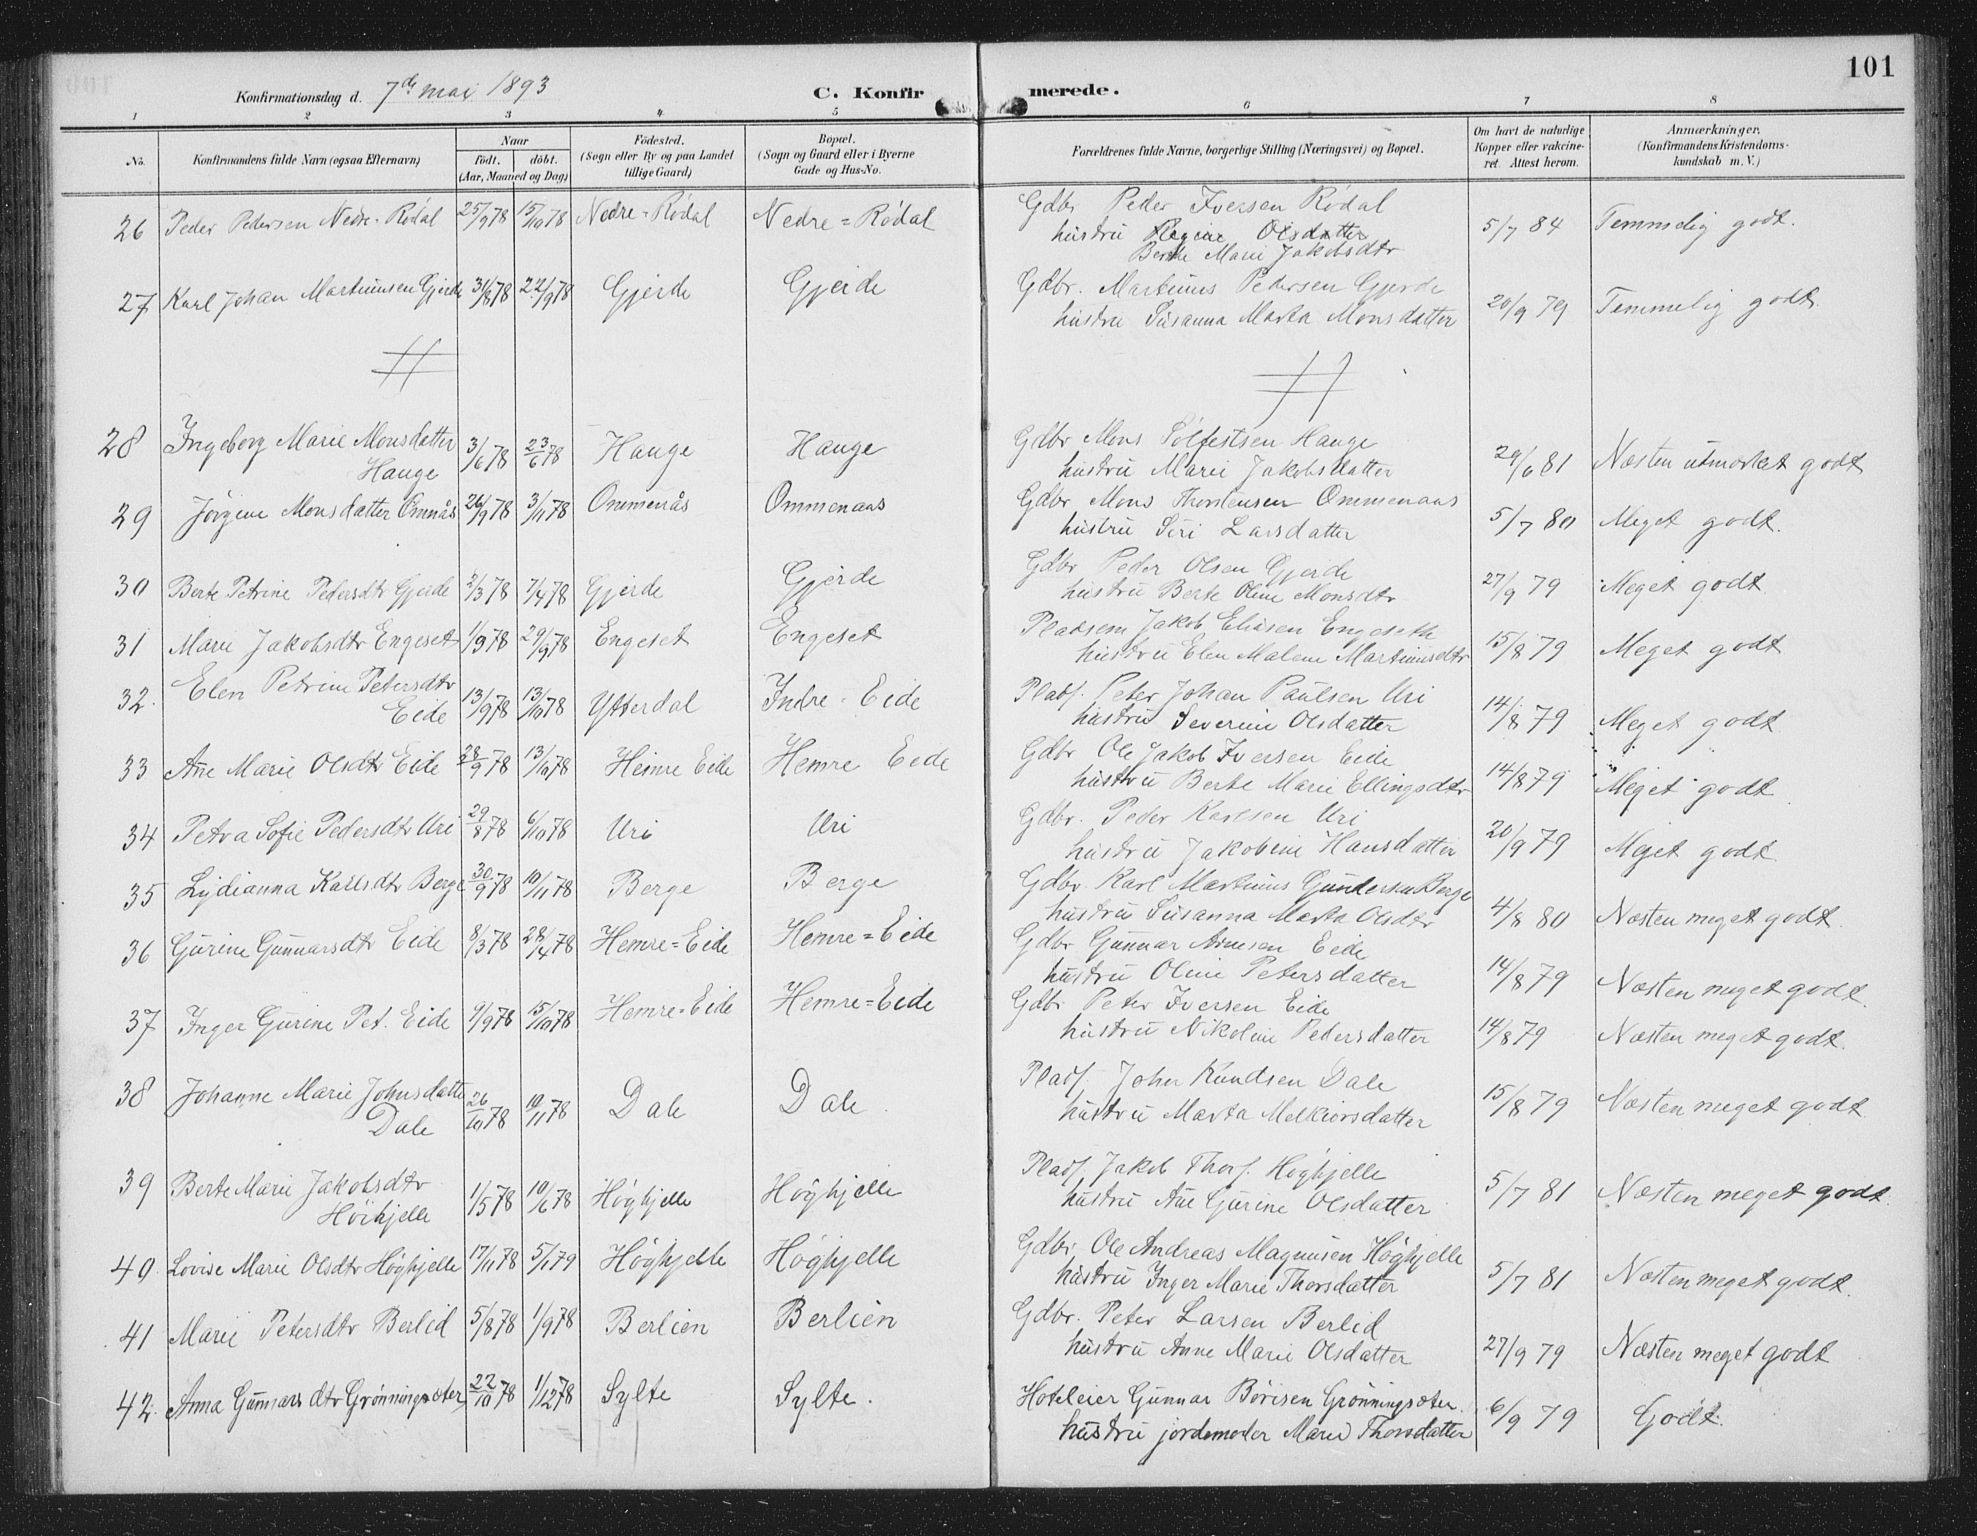 101
Konfirmationsdag d. 7de mai 1893
C. Konfirmerede.
1 2 3 4 5 6 7 8
No. Konfirmandens fulde Navn (ogsaa Efternavn) Naar födt. döbt. (Aar, Maaned og Dag) Födested. (Sogn eller By og paa Landet tillige Gaard) Bopæl. (Sogn og Gaard eller i Byerne Gade og Hus-No. Forældrenes fulde Navne, borgerlige Stilling (Næringsvei) og Bopæl. Om havt de naturlige Kopper eller vakcineret. Attest herom. Anmærkninger. (Konfirmandens Kristendomskundskab m. V.)
26 Peder Pedersen Nedre-Rödal 25/9 78 15/10 78 Nedre=Rödal Nedre=Rödal Gdbr Peder Iversen Rödal 5/7 84 Temmelig godt.
hustru Regine Olsdatter
Berthe Marie Jakobsdtr
27 Karl Johan Martinusen Gjerde 31/8 78 22/9 78 Gjerde Gjerde Gdbr. Martinus Pedersen Gjerde 20/9 79 Temmelig godt.
hustru Susanna Marta Monsdatter
28 Ingeborg Marie Monsdatter Hauge 3/6 78 23/6 78 Hauge Hauge Gdbr Mons Sölfestsen Hauge 29/6 81 Næsten utmærket godt
hustru Marie Jakobsdatter
29 Jörgine Monsdatter Omnås 26/9 78 3/11 78 Ommenås Ommenaas Gdbr Mons Thorstensen Ommenaas 5/7 80 Meget godt.
hustru Siri Larsdatter
30 Berte Petrine Pedersdtr Gjerde 2/3 78 7/4 78 Gjerde Gjerde Gdbr Peder Olsen Gjerde 27/9 79 Meget godt
hustru Berte Oline Monsdtr
31 Marie Jakobsdtr Engeset 1/9 78 29/9 78 Engeset Engeset Pladsem Jakob Eliasen Engeseth 15/8 79 Meget godt
hustru Elen Malene Martinusdtr
32. Elen Petrine Petersdtr Eide 13/9 78 13/10 78 Ytterdal Indre=Eide Plads. Peter Johan Paulsen Uri 14/8 79 Meget godt
hustru Severine Olsdatter
33 Ane Marie Olsdtr Eide 28/9 78 13/10 78 Hemre Eide Hemre Eide Gdbr Ole Jakob Iversen Eide 14/8 79 Meget godt
hustru Berte Marie Ellingsdtr
34 Petra Sofie Pedersdtr Uri 29/8 78 6/10 78 Uri Uri Gdbr. Peder Karlsen Uri 20/9 79 Meget godt
hustru Jakobine Hansdatter
35 Lydianna Karlsdtr Berge 30/9 78 10/11 78 Berge Berge Gdbr. Karl Martinus Gundersen Berge 4/8 80 Næsten meget godt.
hustru Susanna Marta Olsdtr
36 Gurine Gunnarsdtr Eide 8/3 78 28/4 78 Hemre=Eide Hemre=Eide Gdbr Gunnar Arnesen Eide 14/8 79 Næsten meget godt.
hustru Oline Petersdatter
37 Inger Gurine Pet. Eide 9/9 78 15/10 78 Hemre=Eide Hemre=Eide Gdbr Peter Iversen Eide 14/8 79 Næsten meget godt.
hustru Nikoline Pedersdatter
38 Johanne Marie Johnsdatte Dale 26/10 78 10/11 78 Dale Dale. Plads. Joher Kundsen Dale 15/8 79 Næsten meget godt
hustru Marta Melkiorsdatter
39 Berte Marie Jakobsdtr Höihjelle 1/5 78 10/6 78 Höghjelle Höghjelle Plads. Jakob Thors. Höghjelle 5/7 81 Næsten meget godt.
hustru Ane Gurine Olsdatter
40. Lovise Marie Olsdtr Höghjelle 17/11 78 5/1 79 Höghjelle Höghjelle Gdbr. Ole Andreas Magnusen Höghjelle 5/7 81 Næsten meget godt.
hustru Inger Marie Thorsdatter
41 Marie Petersdtr Berlid 5/8 78 1/9 78 Berlien Berlien Gdbr. Peter Larsen Berlid 27/9 79 Næsten meget godt
hustru Anne Marie Olsdatter
42. Anna Gunnarsdtr Grönningsæter 22/10 78 1/12 78 Sylte Sylte. Hoteleier Gunnar Börisen Grönningsæter. 6/9 79 Godt.
hustru jordemoder Marie Thorsdatter